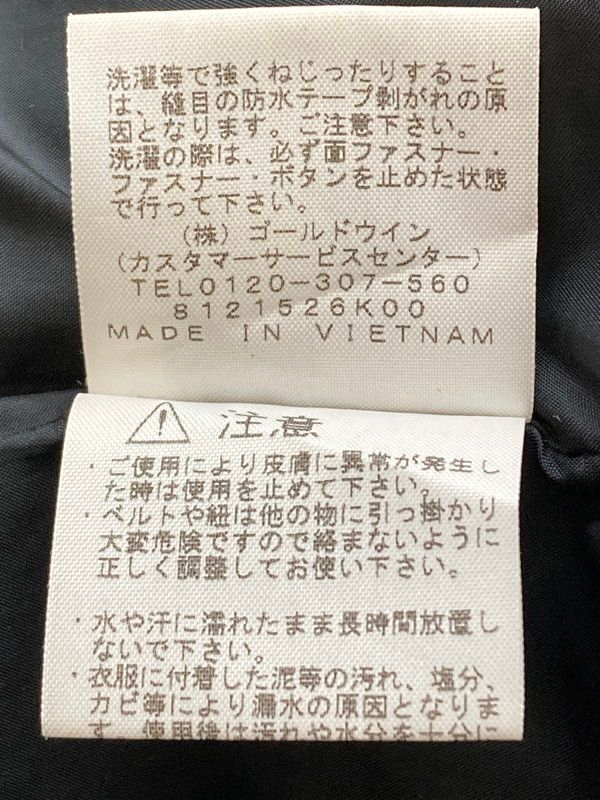 洗濯等で強くねじったりすること
は、縫目の防水テープ剥がれの原
因となります。ご注意下さい。
洗濯の際は、必ず面ファスナー・
ファスナー・ボタンを止めた状態
で行って下さい。
(株)ゴールドウイン
(カスタマーサービスセンター)
TEL0120-307-560
8121526K00
MADE IN VIETNAM
注意
・ご使用により皮膚に異常が発生し
た時は使用を止めて下さい。
・ベルトや紐は他の物に引っ掛かり
大変危険ですので絡まないように
正しく調整してお使い下さい。
・水や汗に濡れたまま長時間放置し
ないで下さい。
・衣服に付着した泥等の汚れ、塩分、
カビ等により漏水の原因となりま
す。使用後は汚れや水分を十分に